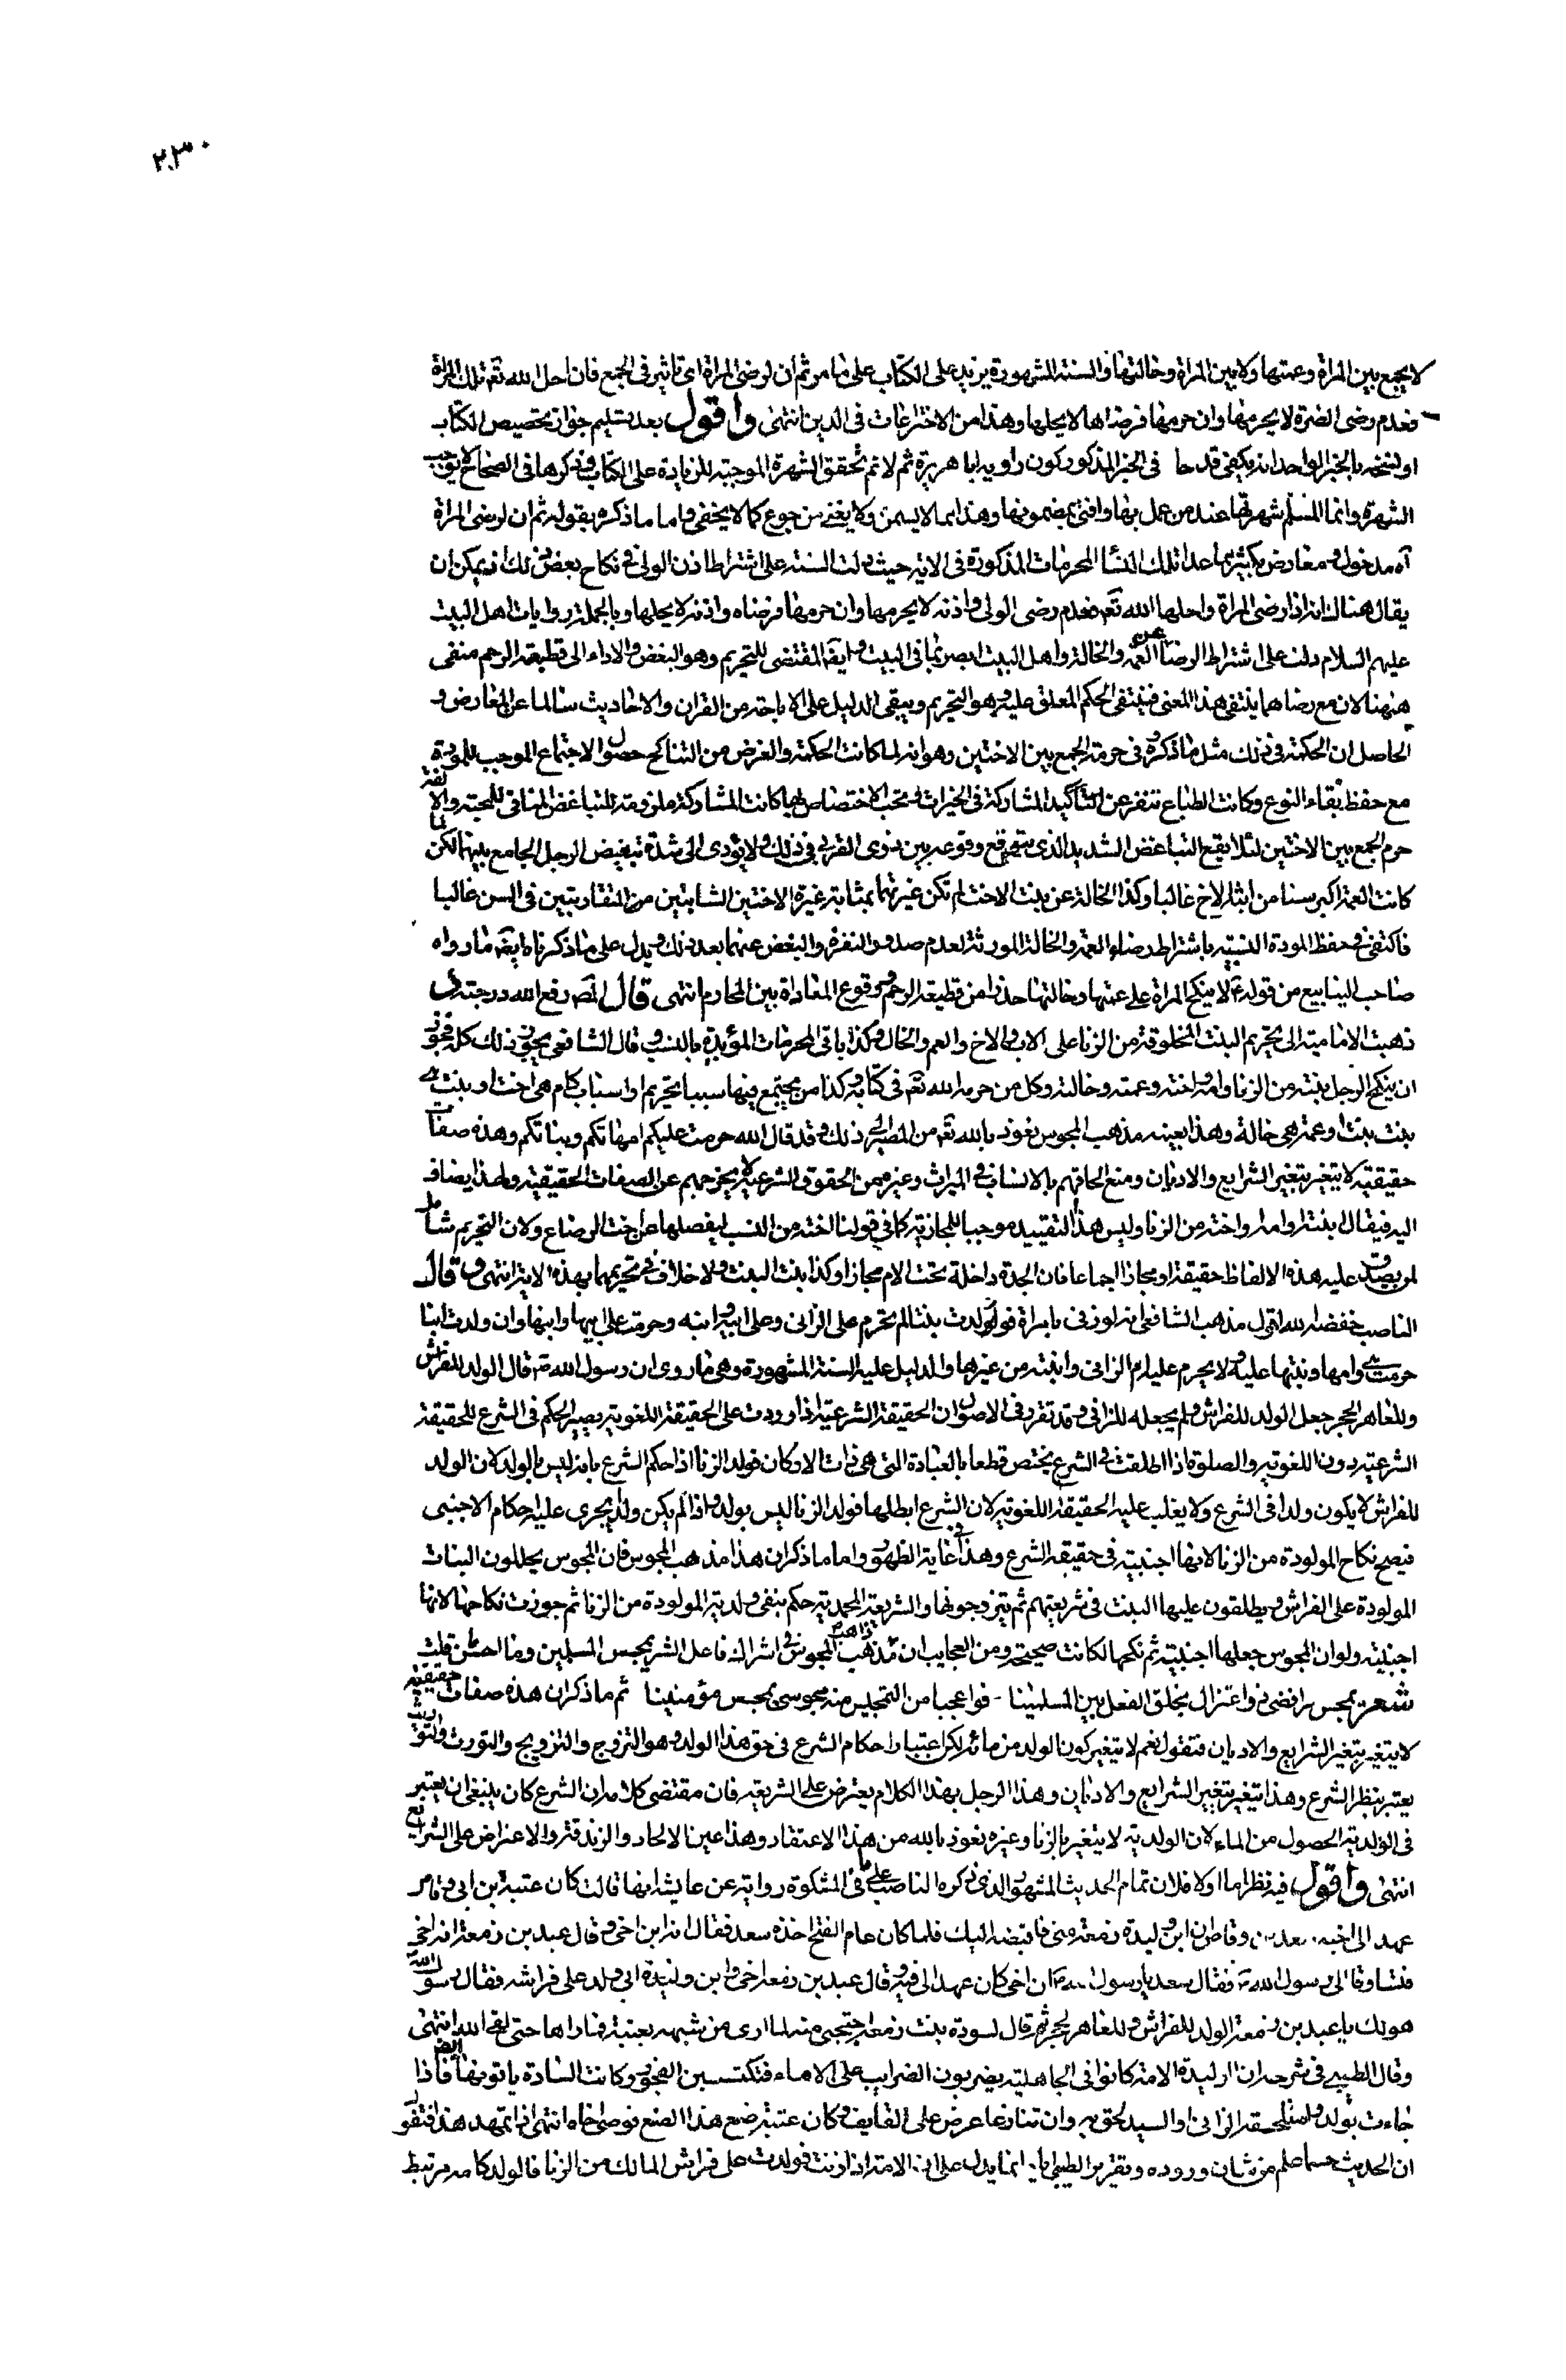 ٢٣٠
لا يجمع بين المراة وعمتها ولا بين المراة وخالتها والسنة المشهورة يزيد على الكتاب على ما مر ثم ان لرضى المراة اى تاثير فى الجمع فان احل الله تعه تلك المراة
فعدم رضى الضرة لا يحرمها وان حرمها فرضاها لا يحلها وهذا من الاختراعات فى الدين انتهى واقول بعد تسليم جواز تخصيص الكتاب
او نسخه بالخبر الواحد انه يكفى قدحا فى الخبر المذكور كون راويه ابا هريرة ثم لا نم تحقق الشهرة الموجبة للزيادة على الكتاب وذكرها فى الصحاح لا يوجب
الشهرة وانما المسلم شهرتها عند من عمل بها وافتى بمضمونها وهذا مما لا يسمن ولا يغنى من جوع كما لا يخفى واما ما ذكره بقوله ثم ان لرضى المراة
آه مدخول معارض بكثير مما عدا تلك النسا المحرمات المذكورة فى الاية حيث دلت السنة على اشتراط اذن الولى فى نكاح بعض ذلك اذ يمكن ان
يقال هناك انه اذا رضى المراة واحلها الله تعه فعدم رضى الولى واذنه لا يحرمها وان حرمها فرضاه واذنه لا يحلها وبالجملة روايات اهل البيت
عليهم السلام دلت على اشتراط الرضا عن العمة والخالة واهل البيت ابصر بما فى البيت وايضا المقتضى للتحريم وهو البغض والاداء الى قطيعة الرحم منفى
ههنا لان مع رضاهما ينتفى هذا المعنى فينتفى الحكم المعلق عليه وهو التحريم ويبقى الدليل على الاباحة من القران والاحاديث سالما عن المعارض و
الحاصل ان الحكمة فى ذلك مثل ما ذكروه فى حرمة الجمع بين الاختين وهو انه لما كانت الحكمة والغرض من التناكح حصول الاجتماع الموجب للمودة
مع حفظ بقاء النوع وكانت الطباع تنفر عن المشاركة فى الخيرات وتحب الاختصاص بها كانت المشاركة ملزومة للتباغض المنافى للمحبة والالفة
حرم الجمع بين الاختين لئلا يقع التباغض الشديد الذى يتوقع وقوعه بين ذوى القربى فى ذلك ولا يؤدى الى شدة تبغيض الرجل الجامع بينهما لكن لما
كانت العمة اكبر سنا من ابنة الاخ غالبا وكذا الخالة عن بنت الاخت لم تكن غيرتهما بمثابة غيرة الاختين الشابتين من المتقاربتين فى السن غالبا
فاكتفى فى حفظ المودة النسبية باشتراط رضاء العمة والخالة المورثة لعدم صدور النفرة والبغض عنهما بعد ذلك ويدل على ما ذكرناه ايضا ما رواه
صاحب الينابيع من قوله ع لا ينكح المراة على عمتها وخالتها حذرا من قطيعة الرحم ووقوع المعاداة بين المحارم انتهى قال المص رفع الله درجته
ذهبت الامامية الى تحريم البنت المخلوقة من الزنا على الاب والاخ والعم والخال وكذا باقى المحرمات المؤبدة بالنسب وقال الشافعى يجوز ذلك كله فجوز
ان ينكح الرجل بنته من الزنا وامه واخته وعمته وخالته وكل من حرمه الله تعه فى كتابه وكذا من يجتمع فيها سببا تحريم او اسباب كام هى اخت او بنت هى
بنت بنت او عمة هى خالة وهذا بعينه مذهب المجوس نعوذ بالله تعه من المصير الى ذلك وقد قال الله حرمت عليكم امهاتكم وبناتكم وهذه صفات
حقيقية لا يتغير بتغير الشرايع والاديان ومنع الحاقهم بالانساب فى الميراث وغيره من الحقوق الشرعية لا يخرجهم عن الصفات الحقيقية ولهذا يضاف
اليه فيقال بنته او امه او اخته من الزنا وليس هذا التقييد موجبا للمجازية كما فى قولنا اخته من النسب ليفصلها عن اخت الرضاع ولان التحريم شامل
لمن يصدق عليه هذه الالفاظ حقيقة او مجازا اجماعا فان الجدة داخلة تحت الام مجازا وكذا بنت البنت ولا خلاف فى تحريمهما بهذه الاية انتهى وقال
الناصب خفضه الله اقول مذهب الشافعى انه لو زنى بامراة فولدت بنتا لم يحرم على الزانى وعلى ابيه وابنه وحرمت على ابيها وابنها وان ولدت ابنا
حرمت هى وامها وبنتها عليه ولا يحرم عليه ام الزانى وابنته من غيرها والدليل عليه السنة المشهورة وهى ما روى ان رسول الله ص قال الولد للفراش
وللعاهر الحجر جعل الولد للفراش ولم يجعله للزانى وقد تقرر فى الاصول ان الحقيقة الشرعية اذا وردت على الحقيقة اللغوية يصير الحكم فى الشرع للحقيقة
الشرعية دون اللغوية والصلوة اذا اطلقت فى الشرع يختص قطعا بالعبادة التى هى ذات الاركان فولد الزنا اذا حكم الشرع بانه ليس بالولد لان الولد
للفراش لا يكون ولدا فى الشرع ولا يغلب عليه الحقيقة اللغوية لان الشرع ابطلها فولد الزنا ليس بولد واذا لم يكن ولدا يجرى عليه احكام الاجنبى
فيصح نكاح المولودة من الزنا لانها اجنبية فى حقيقة الشرع وهذا فى غاية الظهور واما ما ذكر ان هذا مذهب المجوس فان المجوس يحللون البنات
المولودة على الفراش ويطلقون عليها البنت فى شريعتهم ثم يتزوجونها والشريعة المحمدية حكم بنفى ولدية المولودة من الزنا ثم جوزت نكاحها لانها
اجنبية ولو ان المجوس جعلها اجنبية ثم نكحها لكانت صحيحة ومن العجايب ان مذهبه مذاهب المجوس فى اشراك فاعل الشر يمجس المسلمين وما احسن ما قلت
شعر تمجس رافضى ذو اعتزال بخلق الفعل بين المسلمينا - فواعجبا من التمجيس منه مجوسى يمجس مؤمنينا ثم ما ذكر ان هذه صفات حقيقية
لا يتغير بتغير الشرايع والاديان فنقول نعم لا يتغير كون الولد من مائه لكن اعتبار احكام الشرع فى حق هذا الولد وهو التزوج والتزويج والتورث والتوريث
يعتبر بنظر الشرع وهذا يتغير بتغير الشرايع والاديان وهذا الرجل بهذا الكلام يعترض على الشريعة فان مقتضى كلامه ان الشرع كان ينبغى ان يعتبر
فى الولدية الحصول من الماء لان الولدية لا يتغير بالزنا وغيره نعوذ بالله من هذا الاعتقاد وهذا عين الالحاد والزندقة والاعتراض على الشرايع
انتهى واقول فيه نظر اما اولا فلان تمام الحديث المشهور الذى ذكره الناصب على ما فى المشكوة رواية عن عايشه انها قالت كان عتبة بن ابى وقاص
عهد الى اخيه سعد بن وقاص ان ابن وليدة زمعة منى فاقبضه اليك فلما كان عام الفتح اخذه سعد فقال انه ابن اخى وقال عبد بن زمعة انه اخى
فتساوقا الى رسول الله ص فقال سعد يا رسول الله ان اخى كان عهد الى فيه وقال عبد بن زمعة اخى وابن وليدة ابى ولد على فراشه فقال رسول الله
هو لك يا عبد بن زمعة الولد للفراش وللعاهر الحجر ثم قال لسودة بنت زمعة احتجبى منه لما ارى من شبهه بعتبة فما راها حتى لقى الله انتهى
وقال الطيبى فى شرحه ان الوليدة الامة كانوا فى الجاهلية يضربون الضرايب على الاماء فتكتسبن الفجور وكانت السادة ياتونها ايضا فاذا
جاءت بولد استلحقه الزانى او السيد لحق به وان تنازعا عرض على القايف وكان عتبة صنع هذا الصنع فوصى اخاه انتهى اذا تمهد هذا فنقول
ان الحديث حسبما علم من شان وروده وتقرير الطيبى انما يدل على ان الامة اذا زنت فولدت على فراش المالك من الزنا فالولد كامه مرتبط